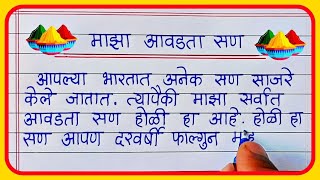 माझा आवडता सण
आपल्या भारतात अनेक सण साजरे
केले जातात. त्यापैकी माझा सर्वात
आवडता सण होळी हा आहे. होळी हा
सण आपण दरवर्षी फाल्गुन